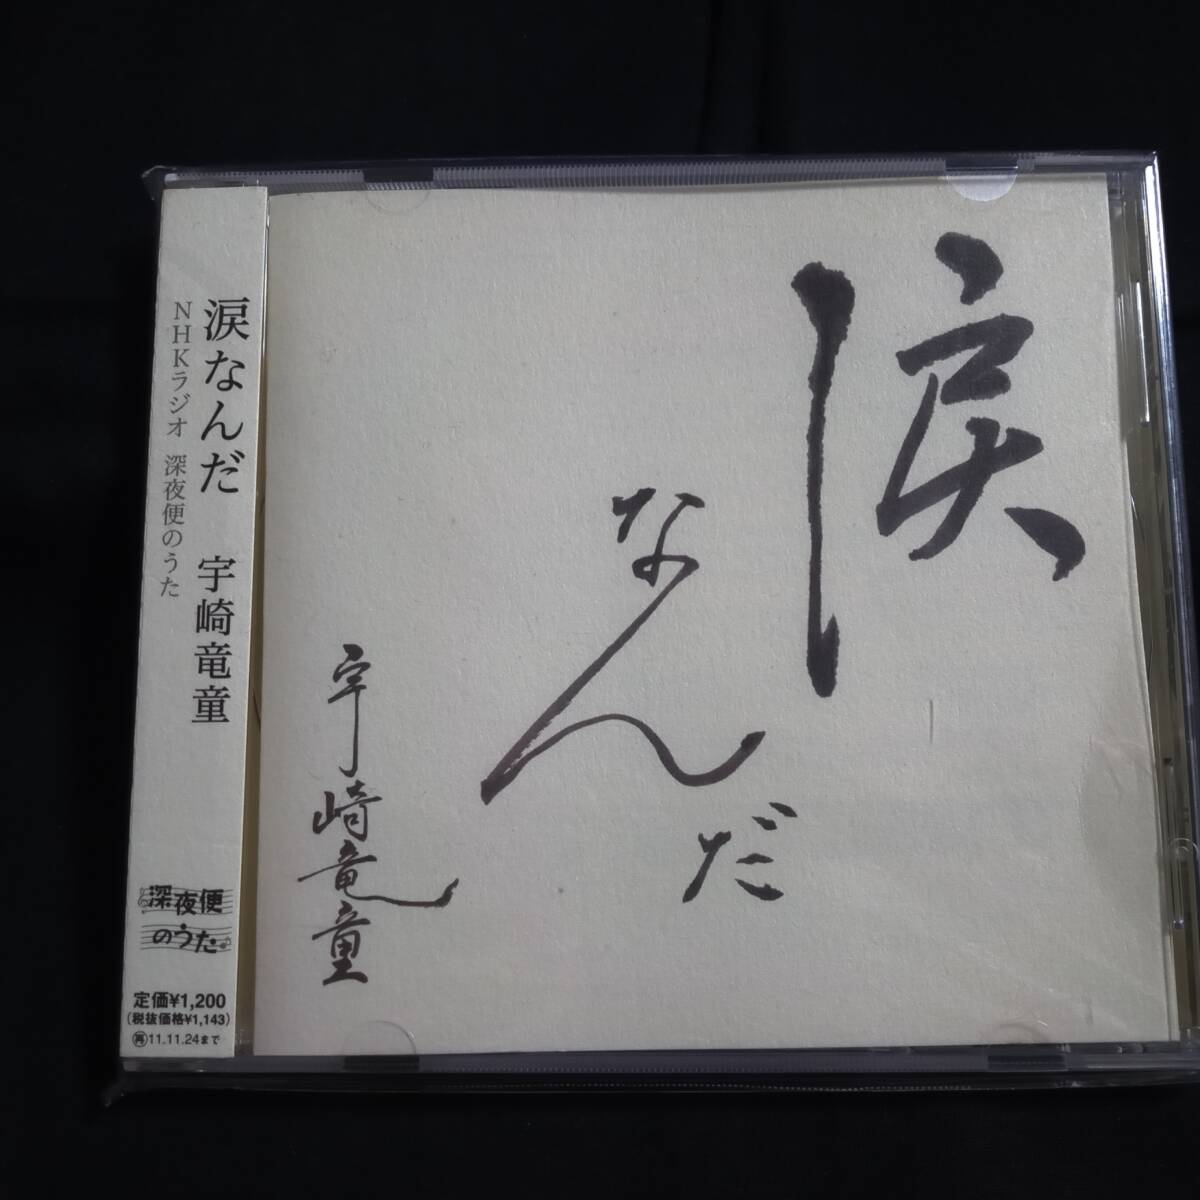 涙なんだ 宇崎竜童
NHKラジオ 深夜便のうた
深夜便
のうた
定価¥1,200
(税抜価格¥1,143)
再11.11.24まで
涙
なん
だ
宇崎竜童